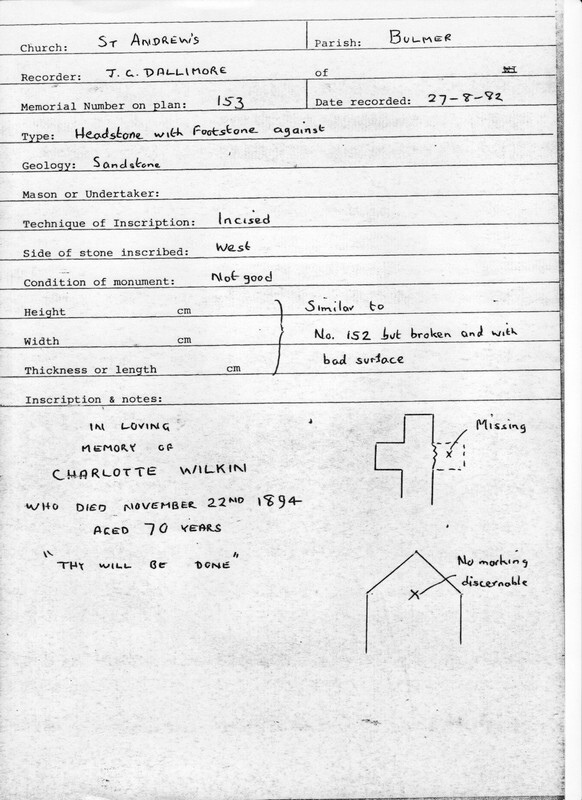 Church: ST ANDREW'S Parish: BULMER
Recorder: J. C. DALLIMORE of
Memorial Number on plan: 153 Date recorded: 27-8-82
Type: Headstone with Footstone against
Geology: Sandstone
Mason or Undertaker:
Technique of Inscription: Incised
Side of stone inscribed: West
Condition of monument: Not good
Height cm Similar to
Width cm No. 152 but broken and with
Thickness or length cm bad surface
Inscription & notes:
IN LOVING
MEMORY OF
CHARLOTTE WILKIN
WHO DIED NOVEMBER 22ND 1894
AGED 70 YEARS
"THY WILL BE DONE"
Missing
No marking
discernable